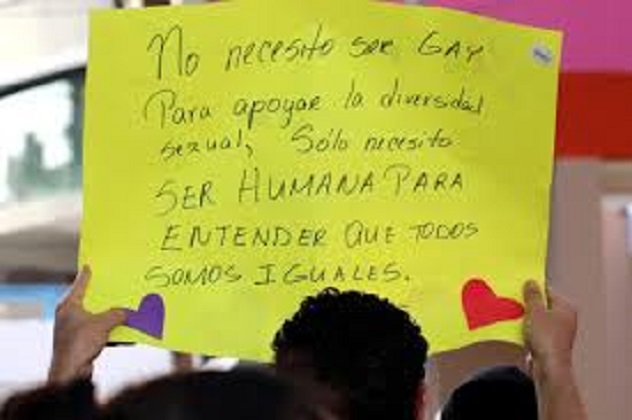 No necesito ser GAY
Para apoyar la diversidad
sexual, Sólo necesito
SER HUMANA PARA
ENTENDER QUE TODOS
SOMOS IGUALES.